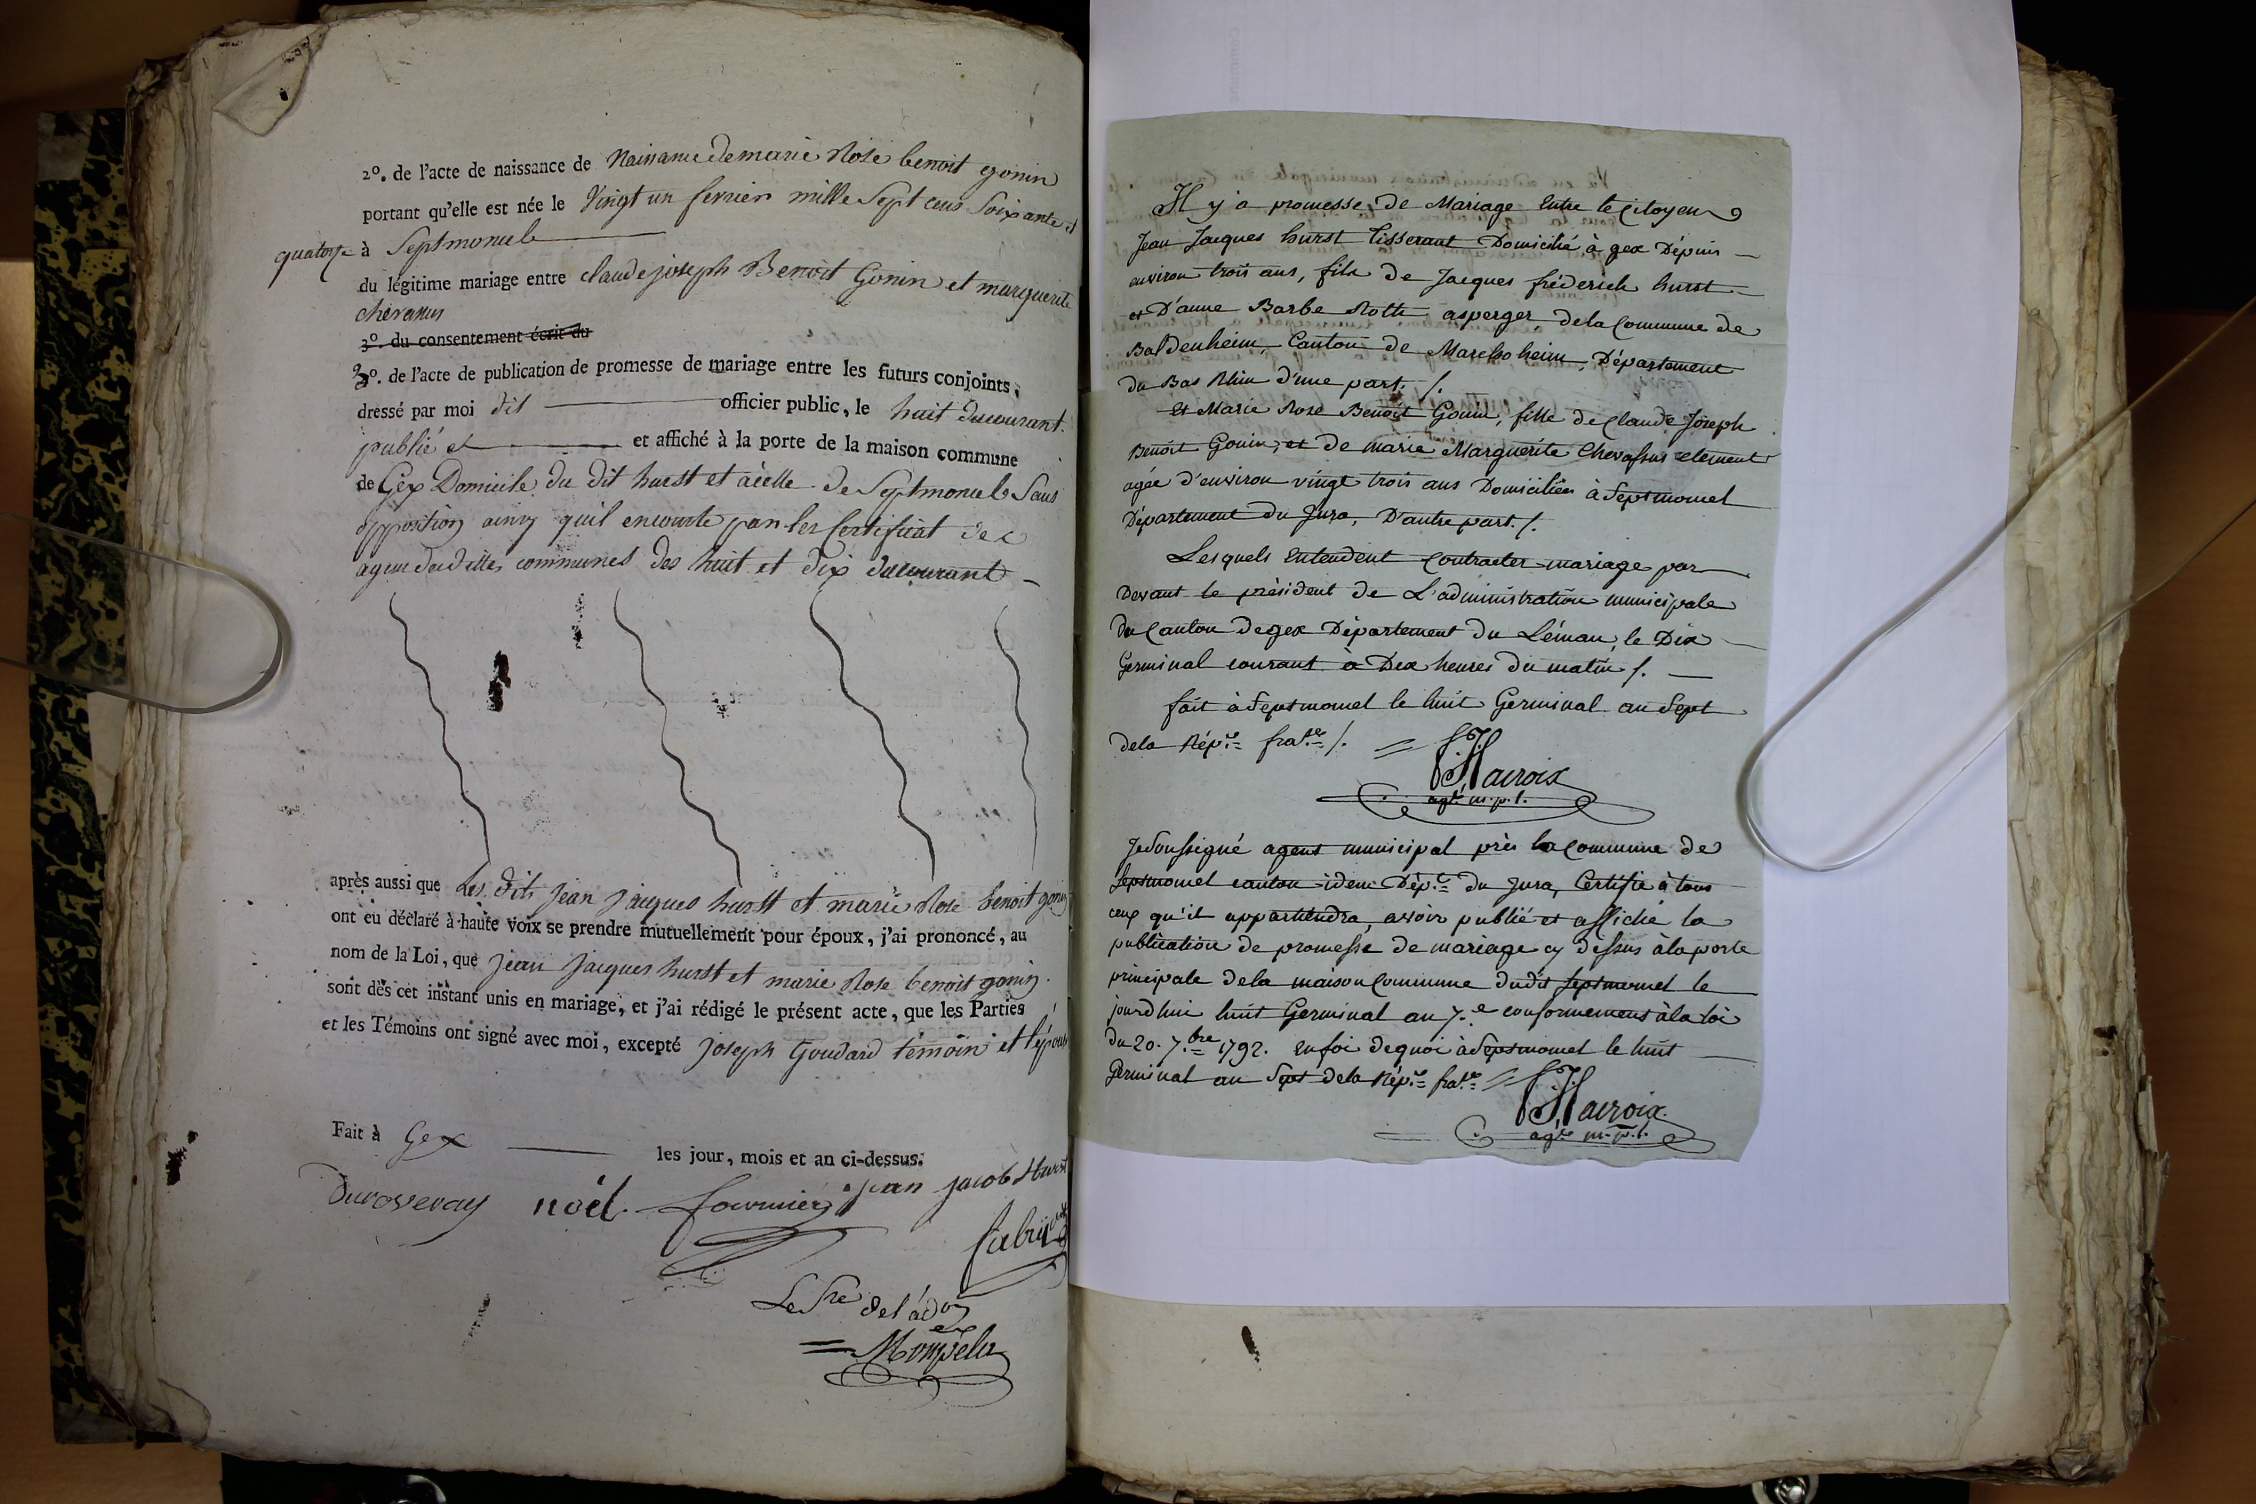 2º. de l'acte de naissance de Naissance de marie Rose benoit gonin
portant qu'elle est née le Vingt un fevrier mille Sept cens Soixante et
quatorze à Septmoncel
du légitime mariage entre claude joseph Benoit Gonin et marguerite
chevassus
3º. du consentement écrit du
3º. de l'acte de publication de promesse de mariage entre les futurs conjoints,
dressé par moi dit officier public, le huit du courant
publié et et affiché à la porte de la maison commune
de Gex Domicile du dit hurst et à celle de Septmoncel Sans
opposition ainsy qu'il enconste par les Certificat des
agens desdittes communes des huit et dix du courant
après aussi que Les dits jean jacques hurst et marie Rose benoit gonin
ont eu déclaré à haute voix se prendre mutuellement pour époux, j'ai prononcé, au
nom de la Loi, que jean jacques hurst et marie Rose benoit gonin
sont dès cet instant unis en mariage, et j'ai rédigé le présent acte, que les Parties
et les Témoins ont signé avec moi, excepté joseph Goudard témoin et l'épouse
Fait à Gex les jour, mois et an ci-dessus.
Duroveray noël fournier jean jacob Hurst
fabry
Le Sre de l'adon
Mompela
Il y a promesse de Mariage Entre le Citoyen
Jean Jacques hurst tisserant Domicilié à gex Dépuis
environ trois ans, fils de Jacques fréderich hurst
et D'anne Barbe Rotth asperger, de la Commune de
Baldenheim, Canton de Marckoheim, Département
du Bas Rhin d'une part. /.
et Marie Rose Benoit Gonin, fille de Claude Joseph
Benoit Gonin, et de marie Marguerite Chevassus clement
agée d'environ vingt trois ans Domiciliée à Septmoncel
Département du Jura, D'autre part. /.
Lesquels Entendent Contracter mariage par
Devant le président de L'administration municipale
du Canton de gex Département du Léman, le Dix
Germinal courant à Dix heures du matin /.
fait à Septmoncel le huit Germinal an Sept
de la Répe. frase. /.
Lacroix
agt. m.p.l.
Je Soussigné agent municipal près la Commune de
Septmoncel canton idem Dépt. du Jura, Certifie à tous
ceux qu'il appartiendra, avoir publié et affiché la
publication de promesse de mariage cy dessus à la porte
principale de la maison Commune dudit Septmoncel le
jourd'hui huit Germinal an 7.e conformement à la loi
du 20. 7.bre 1792. en foi de quoi à Septmoncel le huit
Germinal an Sept de la Répe. frase.
Lacroix
agt. m.p.l.